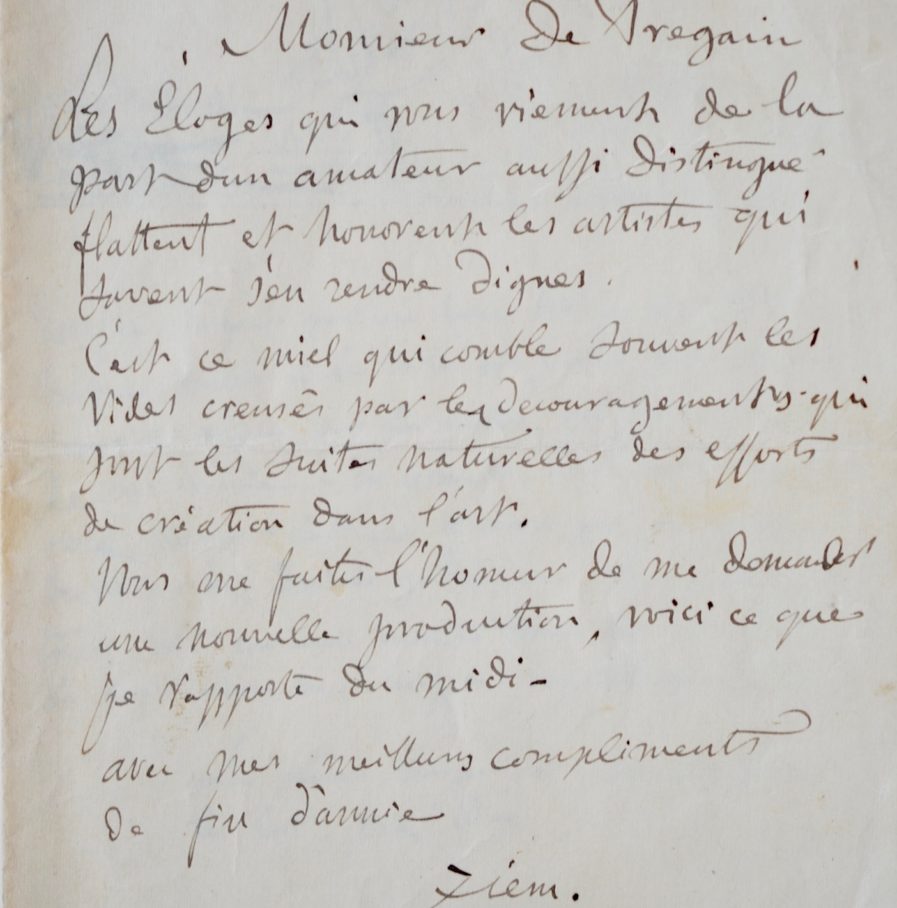 Monsieur De Tregain
Les Éloges qui nous viennent de la
part d'un amateur aussi distingué
flattent et honorent les artistes qui
savent s'en rendre dignes.
C'est ce miel qui comble souvent les
vides creusés par les decouragements qui
sont les suites naturelles des efforts
de création dans l'art.
Vous me faites l'honneur de me demander
une nouvelle production, voici ce que
je rapporte du midi -
avec mes meilleurs compliments
de fin d'année
Ziem.